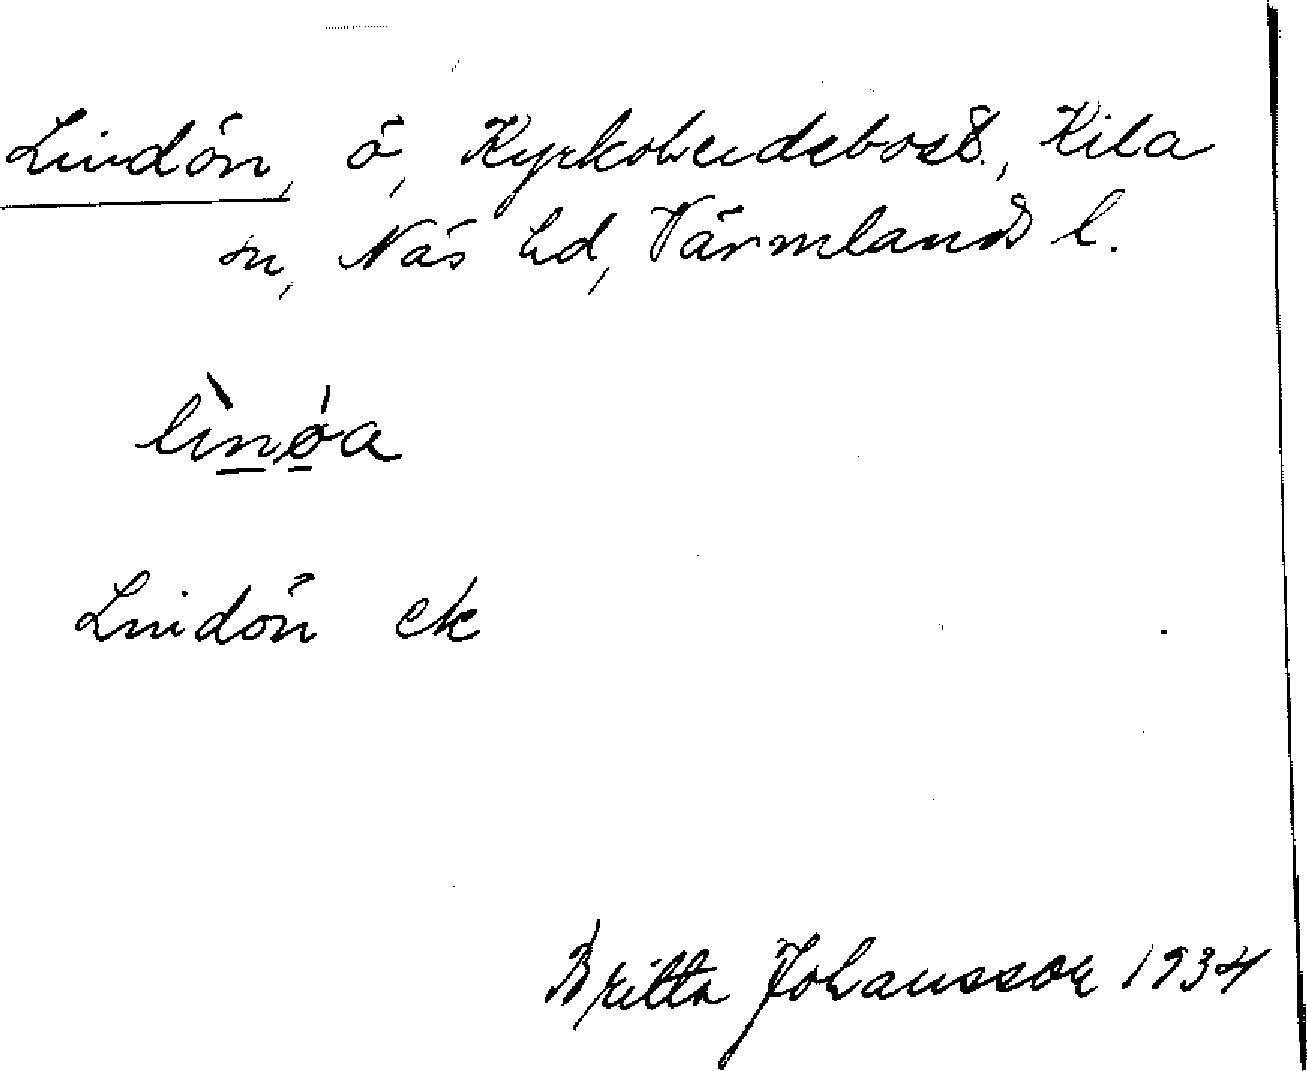 Lindön, ö, Kyrkobudebost., Kila
sn, Näs hd, Värmlands l.
lìnǿa
Lindön ek
Britta Johansson 1934